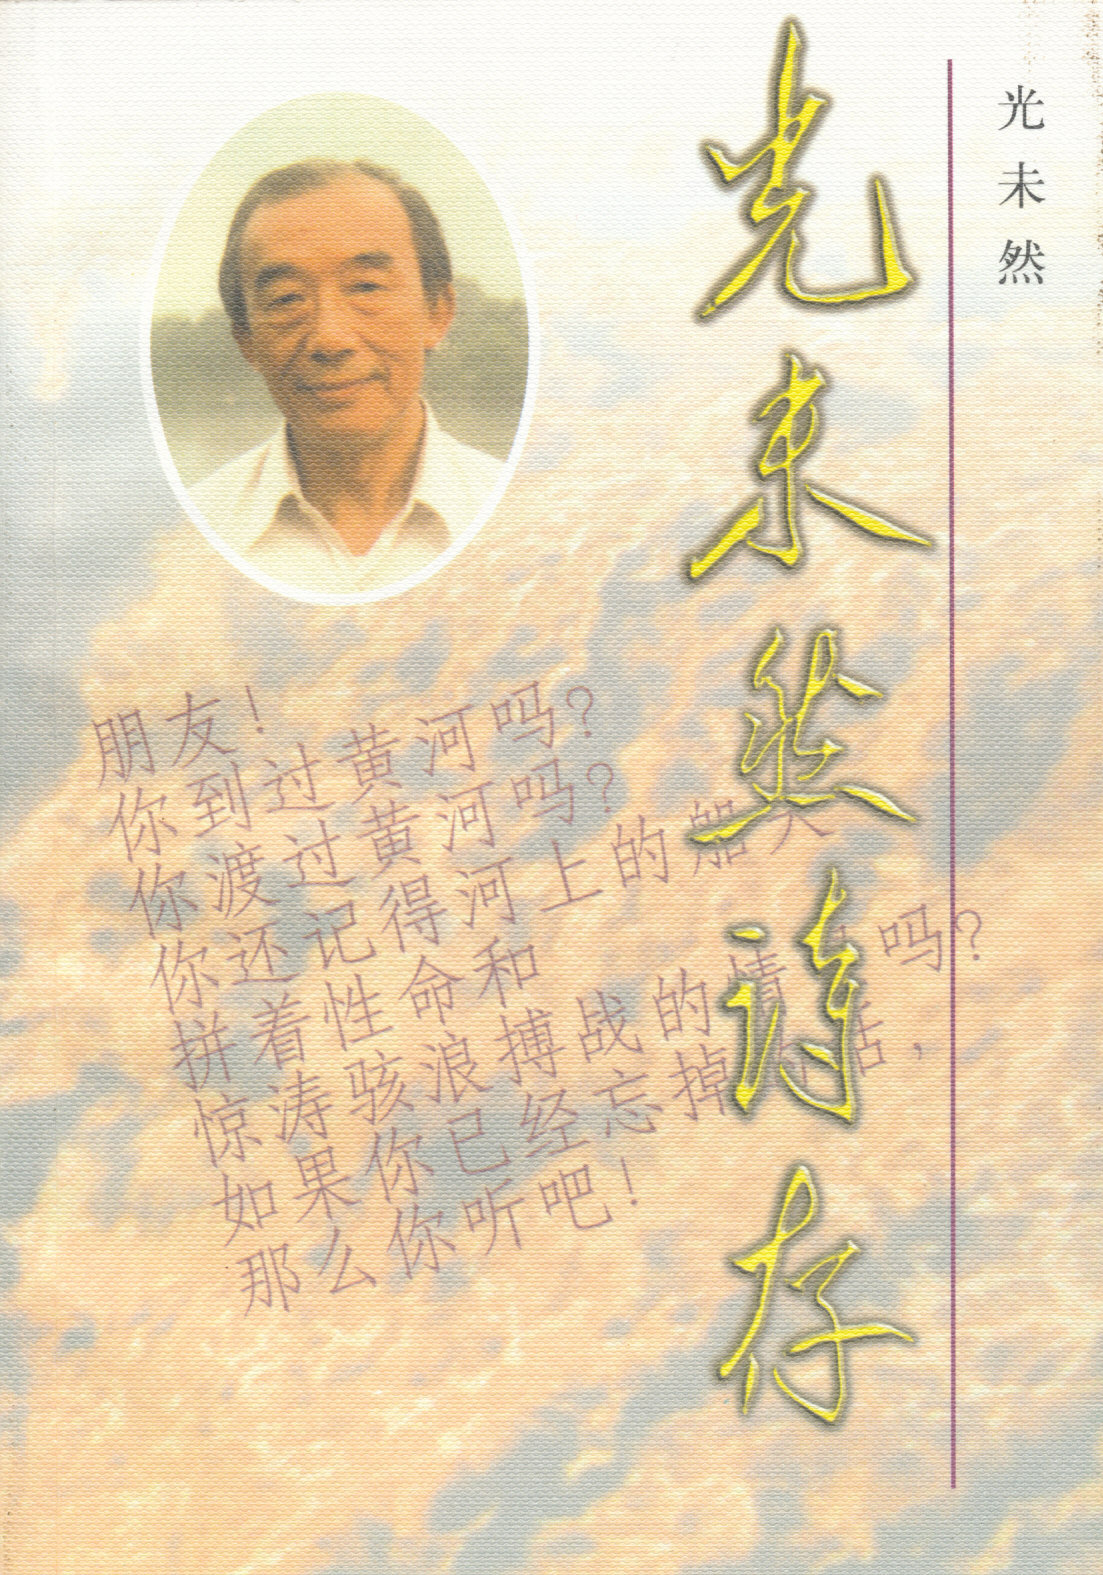 光未然
光未然诗存
朋友！
你到过黄河吗？
你渡过黄河吗？
你还记得河上的船夫
拼着性命和
惊涛骇浪搏战的情吗？
如果你已经忘掉话，
那么你听吧！